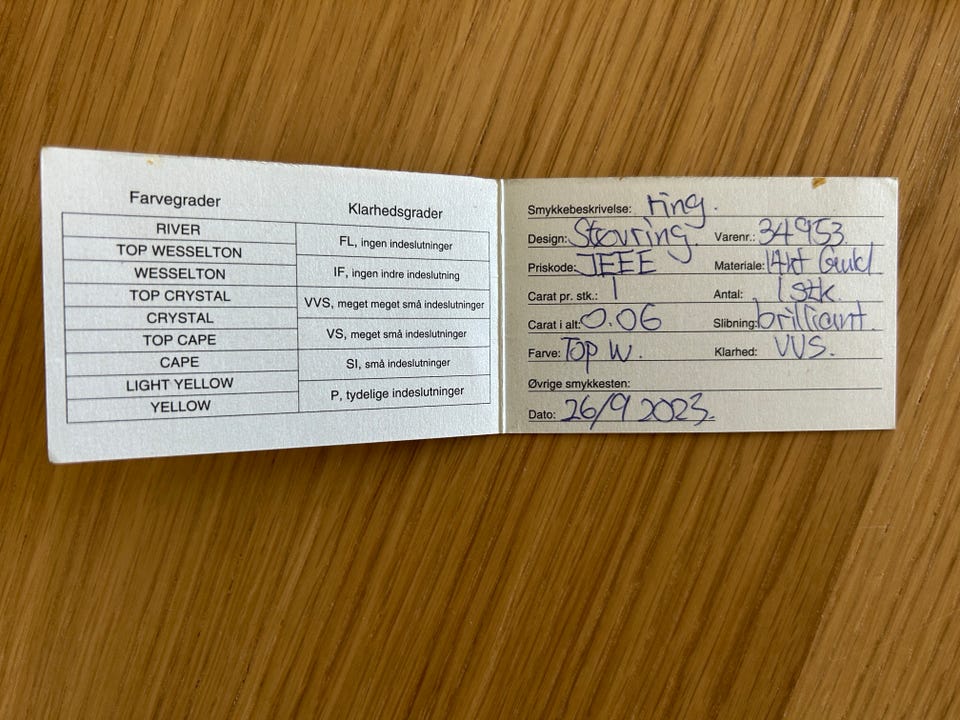 Farvegrader
RIVER
TOP WESSELTON
WESSELTON
TOP CRYSTAL
CRYSTAL
TOP CAPE
CAPE
LIGHT YELLOW
YELLOW
Klarhedsgrader
FL, ingen indeslutninger
IF, ingen indre indeslutning
VVS, meget meget små indeslutninger
VS, meget små indeslutninger
SI, små indeslutninger
P, tydelige indeslutninger
Smykkebeskrivelse: ring.
Design: Støvring Varenr.: 34953.
Priskode: JEEE Materiale: 14kt Guld
Carat pr. stk.: 1 Antal: 1 stk.
Carat i alt: 0.06 Slibning: brilliant.
Farve: Top W. Klarhed: VVS.
Øvrige smykkesten:
Dato: 26/9 2023.